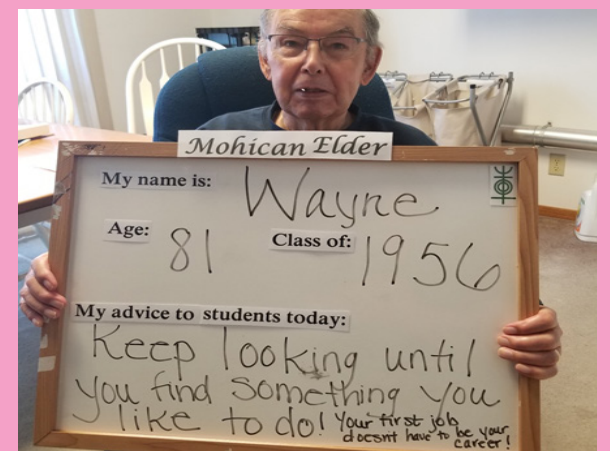 Mohican Elder
My name is: Wayne
Age: 81 Class of: 1956
My advice to students today:
Keep looking until
you find something you
like to do! Your first job
doesnt have to be your
career!